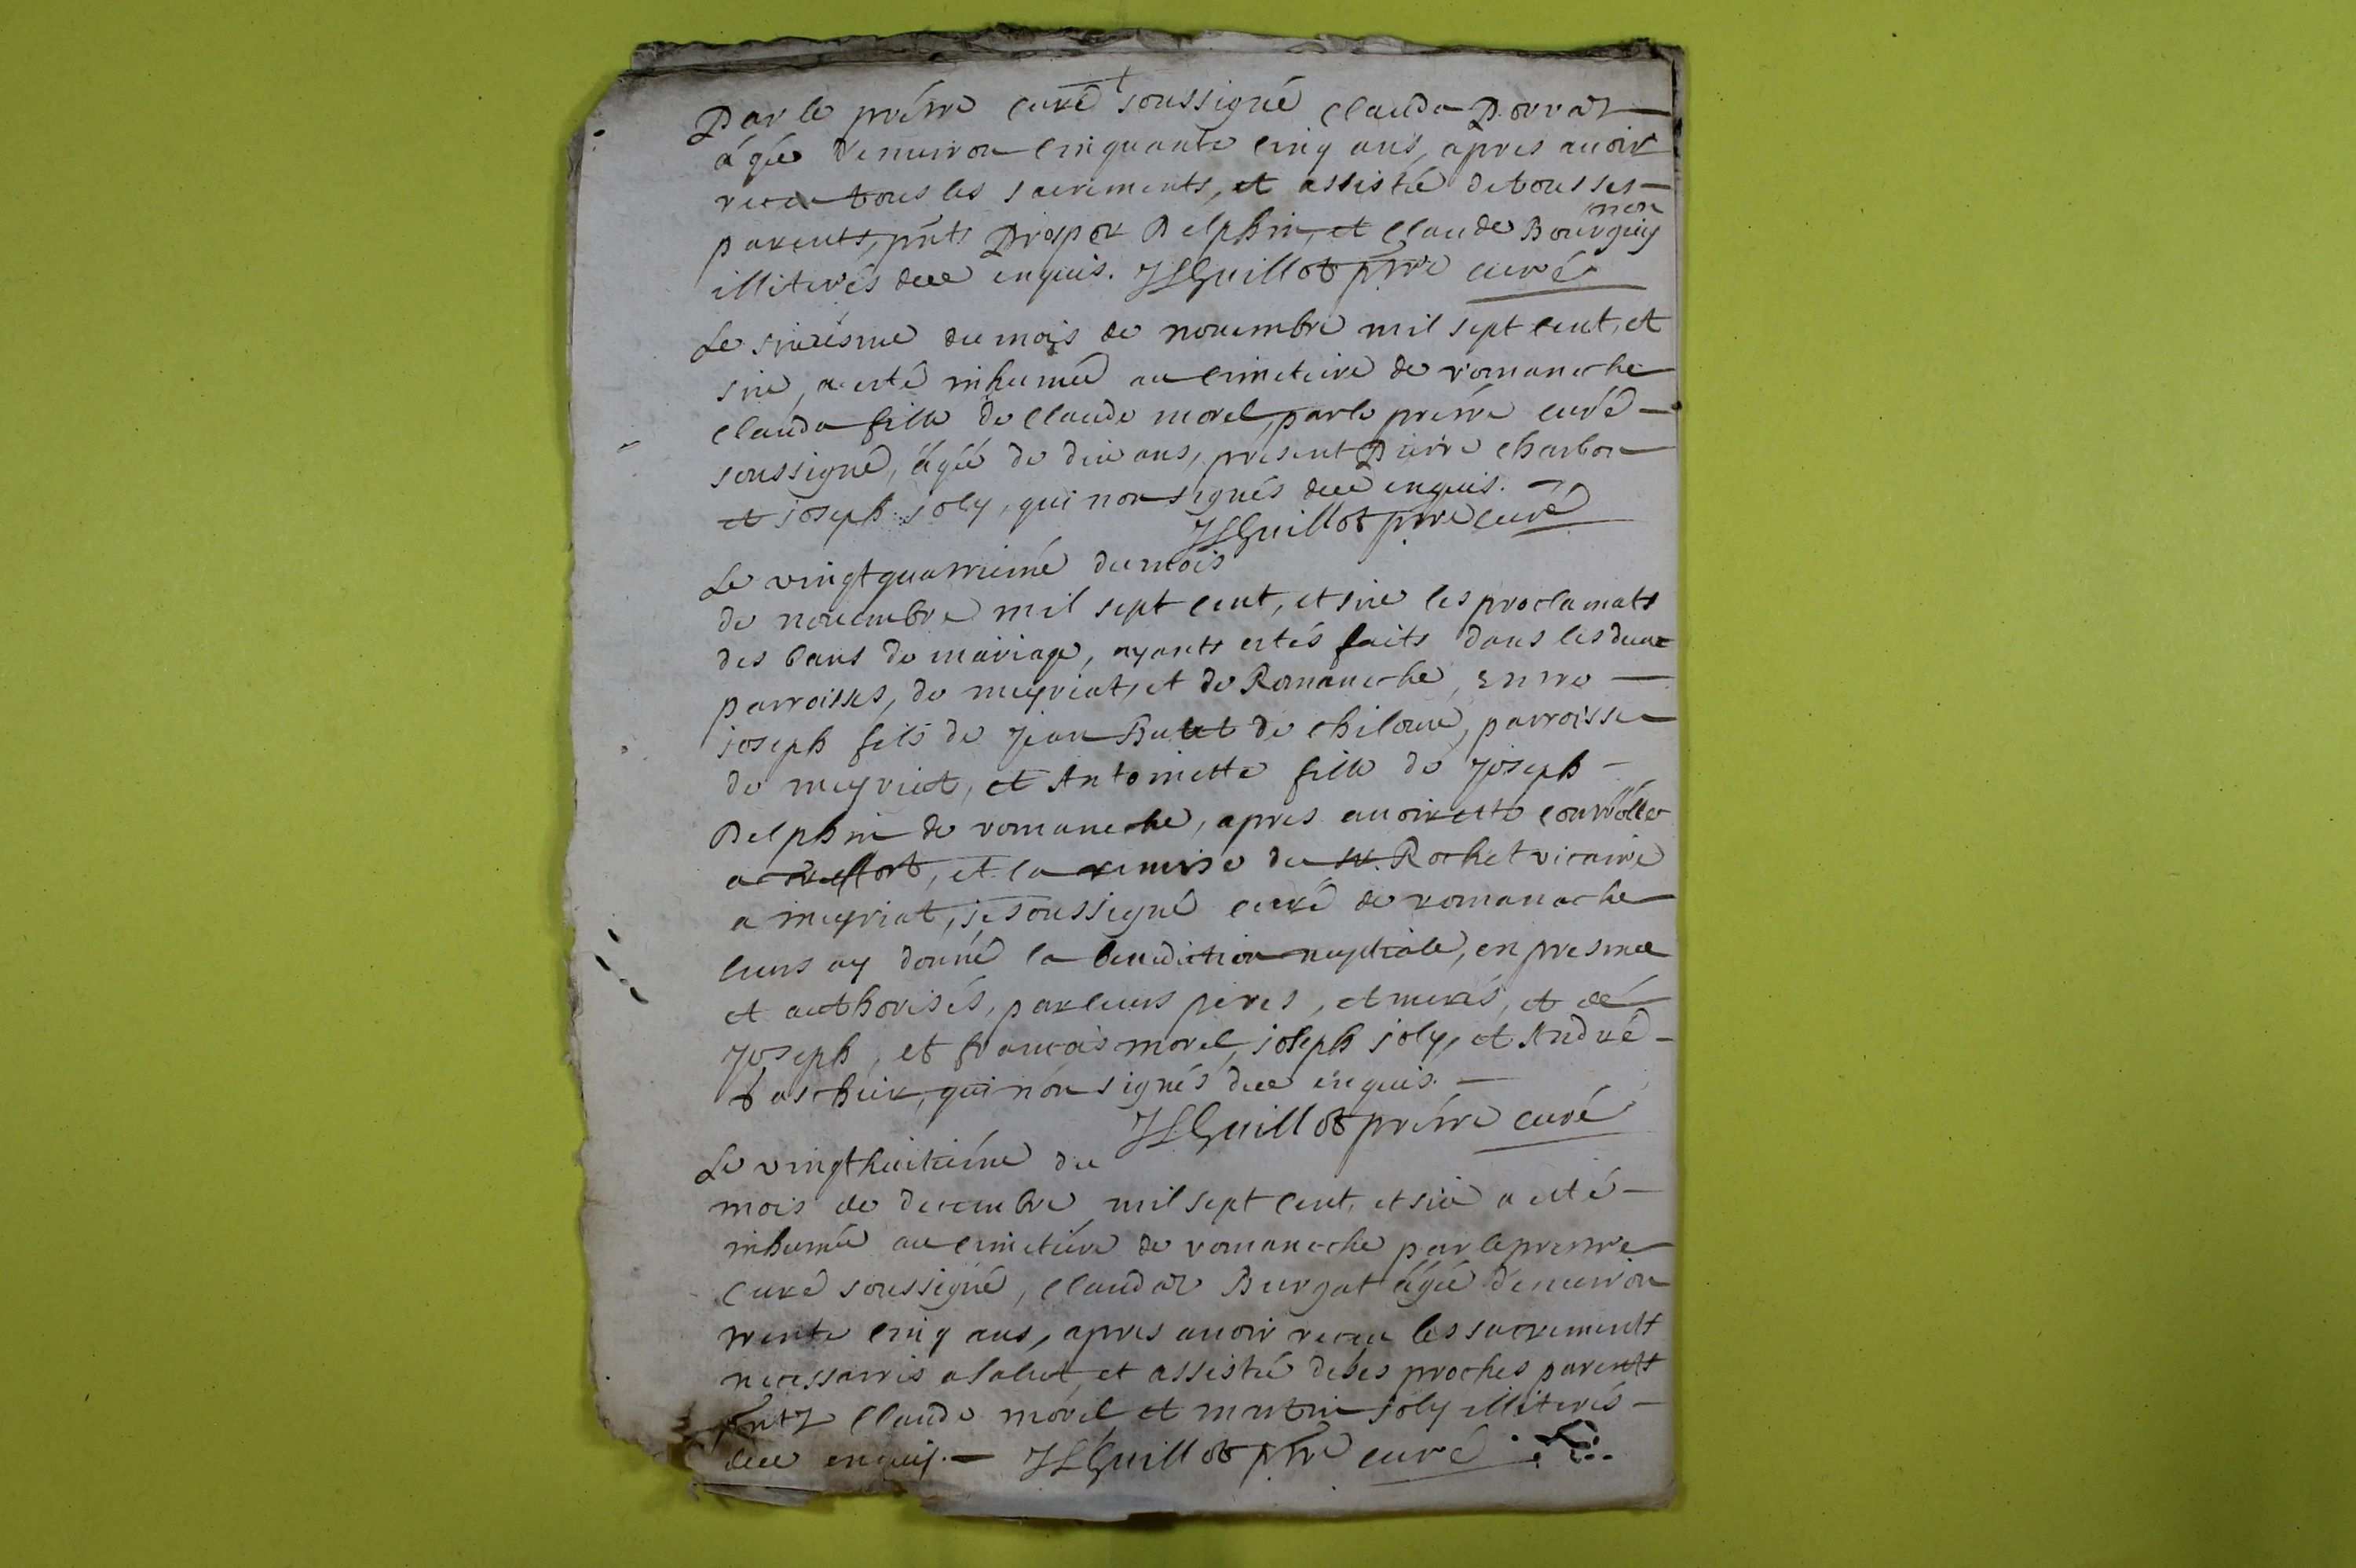 Par le prêtre curé soussigné Clauda Dorvat
ágée d'enuiron cinquante cinq ans, apres auoir
receu tous les sacrements, et assistée de tous ses
parents, pnts Prosper Delphin, et Claude Bourguignon
illiterés de ce enquis. JLGuillot ptre curé
Le sixiesme du mois de nouembre mil sept cent, et
six, a esté inhumée au cimetiere de romaneche
Clauda fille de Claude morel, par le prêtre curé
soussigné, ágée de dix ans, présent Pierre Charbon
et joseph joly, qui non signés de ce enquis.
JLGuillot ptre curé
Le vingtquatriémé du mois
de nouembre mil sept cent, et six les proclamats
des bans de mariage, ayants estés faits dans les deux
parroisses, de meyriat, et de Romaneche, entre
joseph fils de Jean Butet de chiloux, parroisse
de meyriat, et Antoinette fille de Joseph
Delphin de romaneche, apres auoir esté controllés
a et la remise du sr. Rochet vicaire
a meyriat, je soussigné curé de romaneche
leurs ay donné la benediction nuptiale, en presence
et authorisés, par leurs peres, et merés, et de
Joseph, et francois morel, joseph joly, et André
qui non signés de ce enquis.
JLGuillot prêtre curé
Le vingthuitiéme du
mois de decembre mil sept cent, et six a esté
inhumée au cimetiére de romaneche par le prestre
curé soussigné, Claudaz Burgat ágée d'enuiron
trente cinq ans, apres auoir receu les sacrements
necessairs a salut, et assistée de ses proches parents
pntz Claude morel et martin joly illiterés
de ce enquis. JLGuillot ptre curé